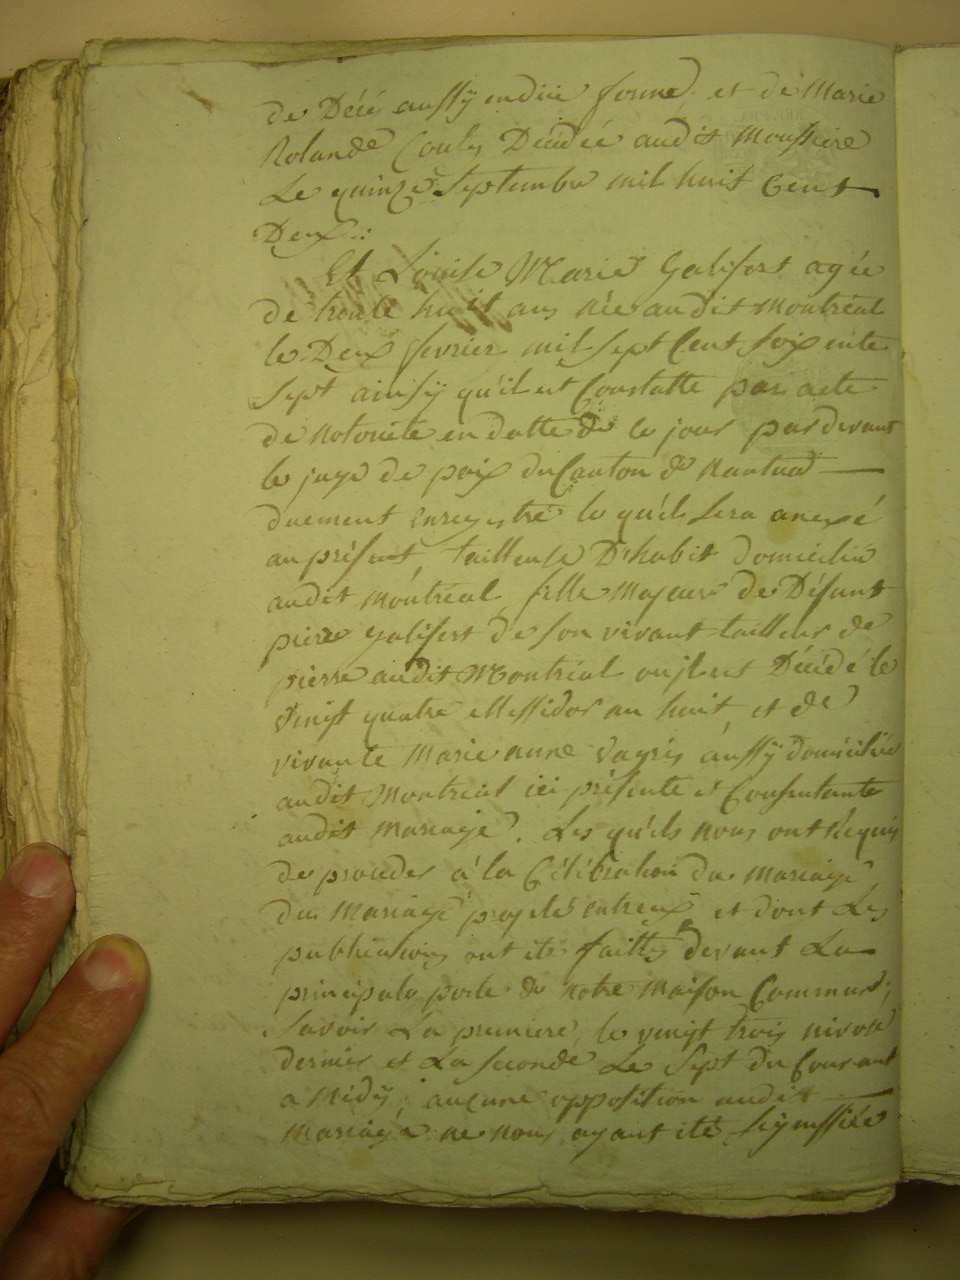 de Décé aussÿ en due forme, et de Marie
Rolande Couly Décédée audit Moussiere
Le quinze Septembre mil huit Cent
Deux.
Et Louise Marie Galifert agée
de trente huit ans née audit Montréal
le Deux fevrier mil sept Cent soixente
Sept ainsÿ qu'il est Constatté par acte
de Notoriété en datte de ce jour pardevant
le juge de paix du Canton de Nantua
duement enregistré le quels sera anexé
au présent, tailleuse D'habit domiciliée
audit Montréal fille Majeure de Défunt
pierre Galifert de son vivant tailleur de
pierre audit Montréal ou jl est Décédé le
vingt quatre Messidor an huit, et de
vivante Marie anne aussÿ domiciliée
audit Montréal ici présente et Consentante
audit Mariage. Les quels nous ont réquis
de proceder à la Célébration du Mariage
du Mariage projeté entreux et dont Les
publications ont été faittes devant La
principale porte de notre Maison Commune,
Savoir La premiere, le vingt trois nivose
dernier et La seconde Le Sept du Courant
a Midÿ; aucune opposition audit
Mariage ne nous ayant été Signiffiée